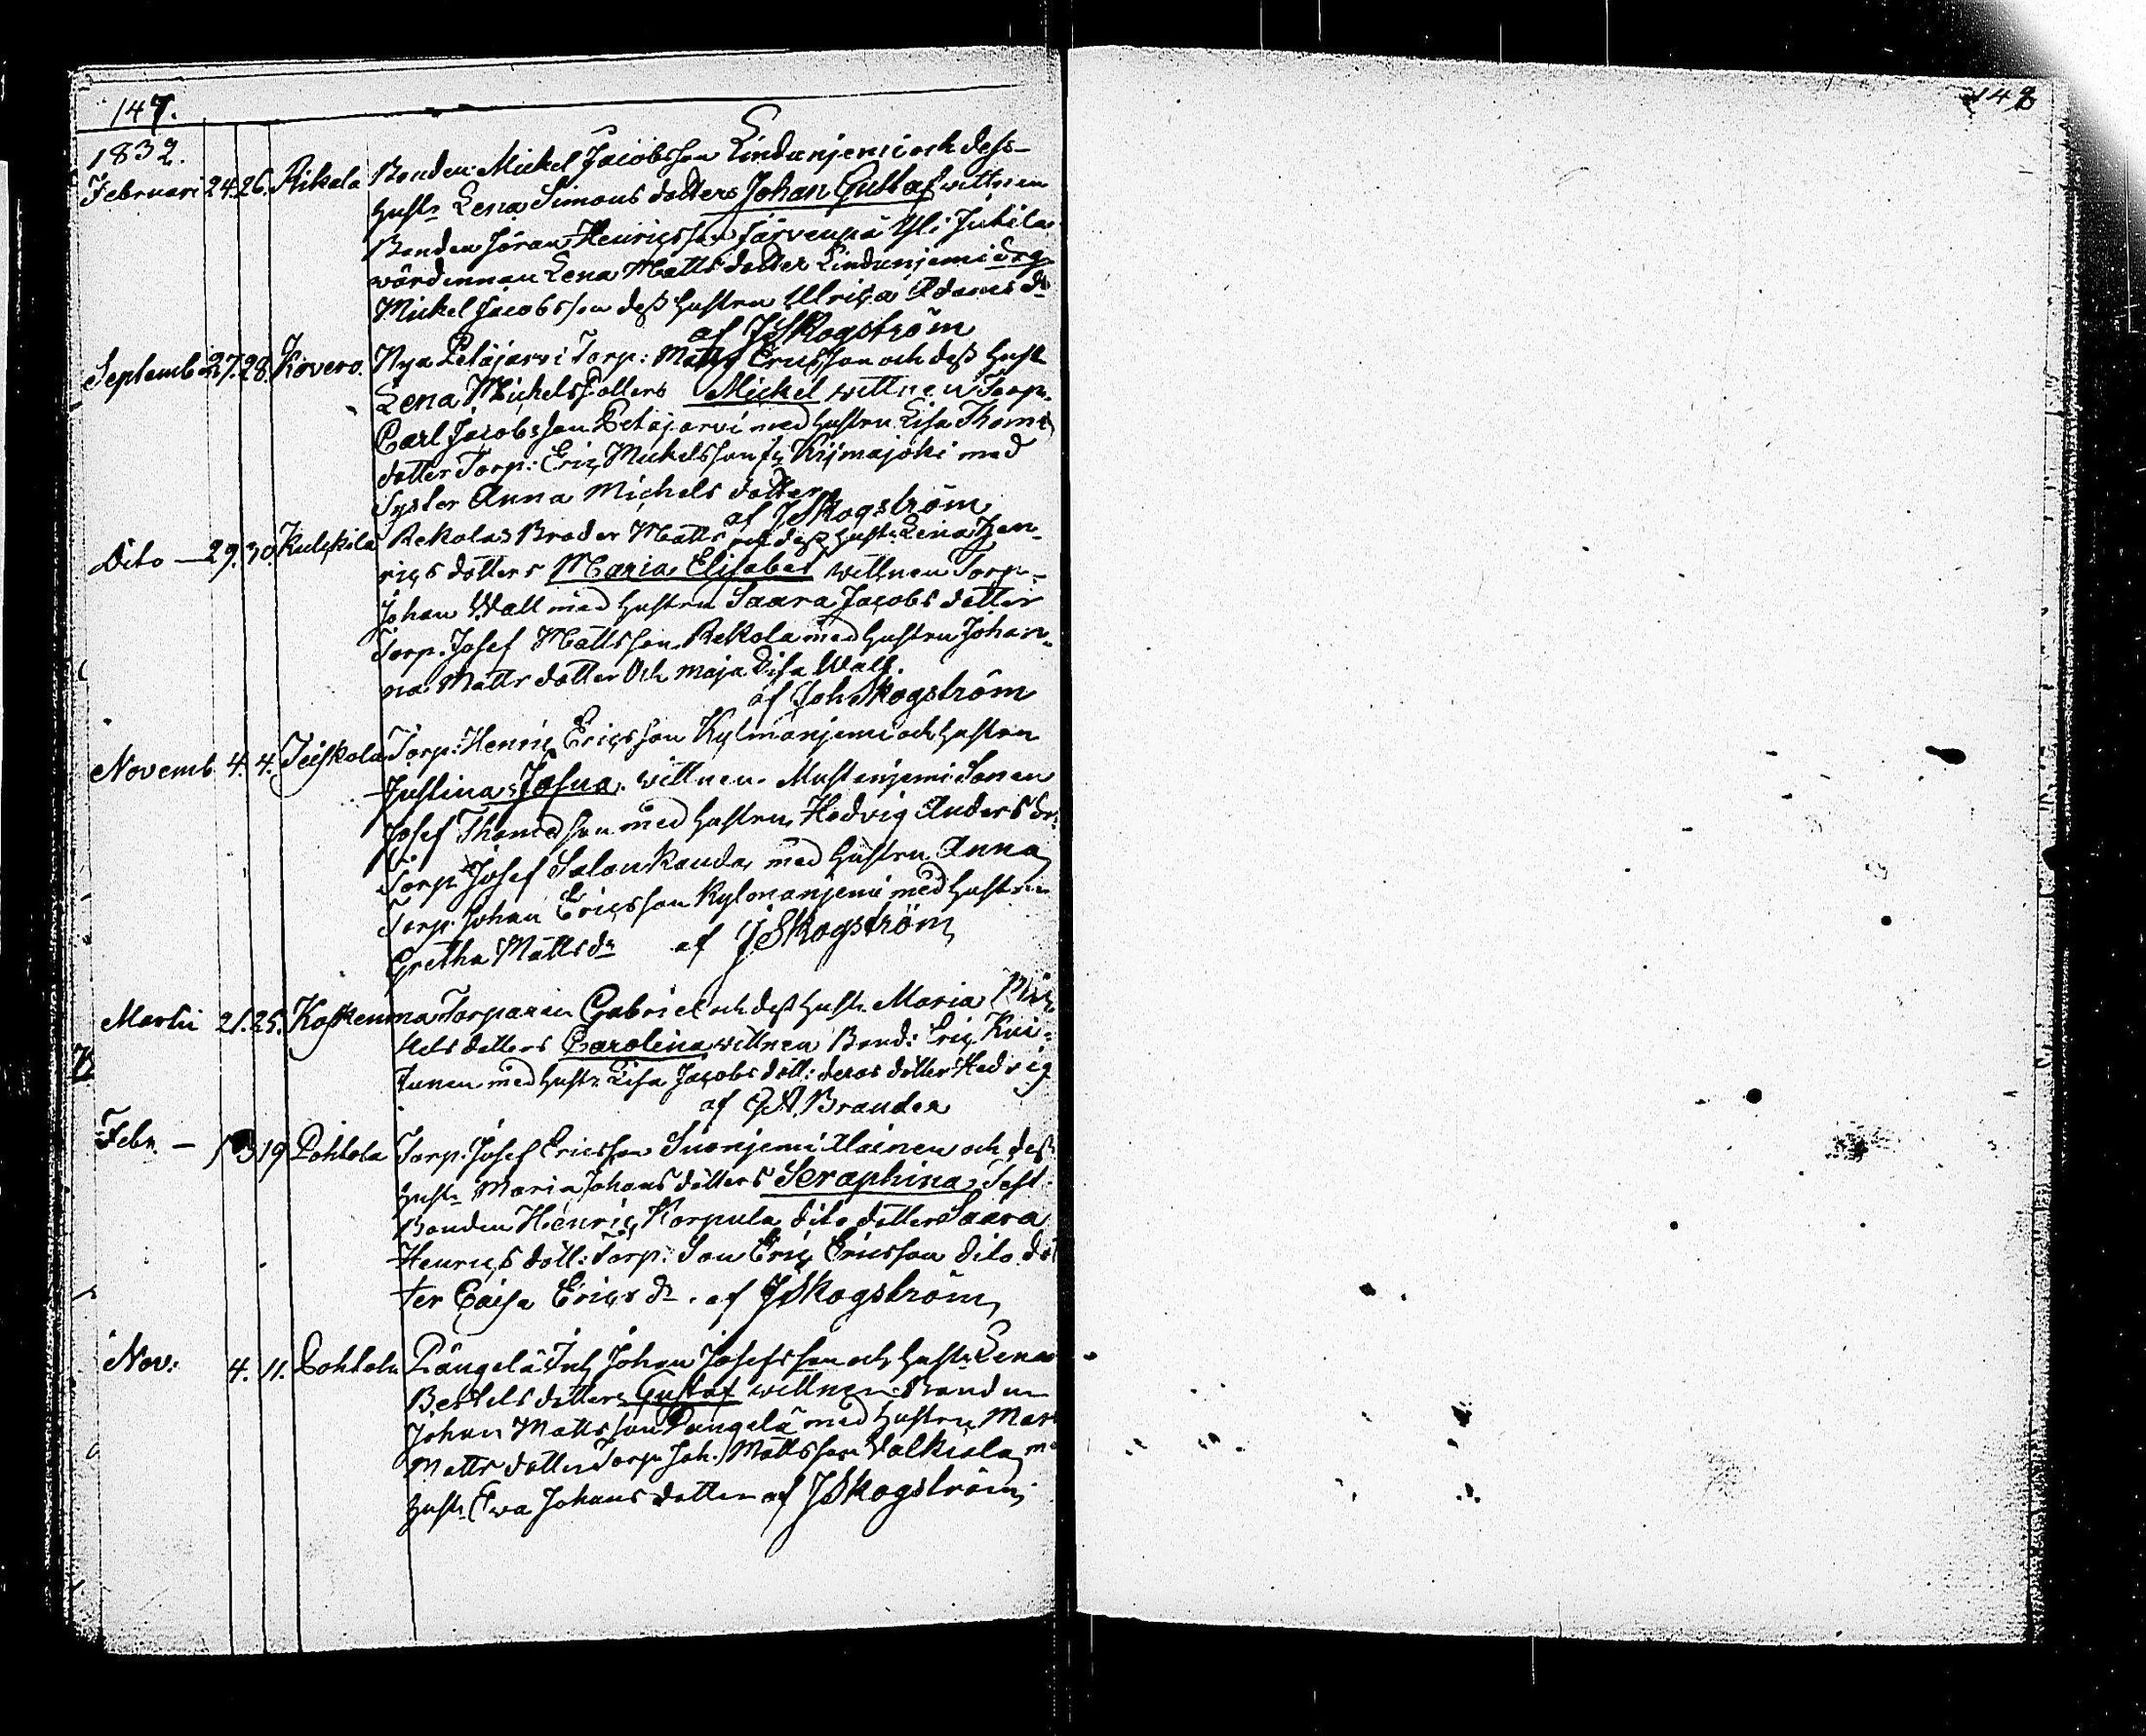 147.
148
1832.
Februari 24. 26. Rikala Bonden Mickel Jacobsson Lindunjemi och dess
hustr Lena Simonsdotters Johan Gustaf wittnen
Bonden Jöran Henricsson Järvenpä Yli Jutila
wärdinnan Lena Mattsdotter Lindunjemi drg
Mickel Jacobsson dess hustru Ulrica Adams dr
af J Skogström
Septemb 27. 28. Kovero. Nya Petäjarvi Torp: Matts Ericsson och dess hustr
Lena Michelsdotters Mickel wittnen Torp.
Carl Jacobsson Petäjarvi med hustru Lisa Thoms
dotter Torp: Eric Mickelsson fr Kijmajoki med
Syster Anna Michels dotter
af J Skogström
Dito — 29. 30. Kulkila Rekolas Broder Matts och dess hustr Lena Hen-
rics dotters Maria Elisabet wittnen Torp-
Johan Wall med hustru Saara Jacobs dotter
Torp. Josef Mattsson Rekola med hustru Johan-
na Matts dotter Och Maja Lisa Wall.
af Joh Skogström
Novemb 4. 4. Teiskola Torp: Henric Ericsson Kylmänjemi och hustru
Justinas Josua. wittnen. Mustenjemi Sonen
Josef Thomasson med hustru Hedvig Anders dr:
Torp Josef Salonkanda med hustru Anna
Torp. Johan Ericsson Kylmanjemi med hustru
Gretha Matts dr af J Skogström
Martii 21. 25. Koskenma Torparen Gabriel och dess hustr. Maria Mic
kels dotters Carolina wittnen Bond: Eric Kui-
tunen med hustr Lisa Jacobs dott: deras dotter Hedvig
af G A. Brander
Febr. — 19 Pohtola Torp. Josef Ericsson Suonjemi Alainen och dess
hustr Maria Johans dotters Seraphina, Test.
Bonden Henric Korpula dito dotter Saara
Henrics dott: Torp: Son Eric Ericsson dito dot
ter Caisa Erics dr. af J Skogström
Nov: 4. 11. Pohtola Pängelä Inh Johan Josefsson och hustr Lena
Bertels dotters Gustaf wittnen: Bonden
Johan Mattsson Pängelä med hustru Mar
Matts dotter Torp Joh. Mattsson Valkiala m
hustr Ewa Johans dotter af J Skogström